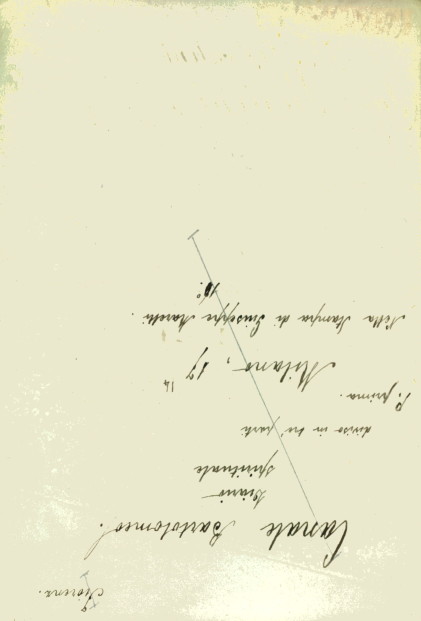 Canale Bartolomeo.
Diario
spirituale
diviso in tre parti
P. prima.
Milano, 17
Nella stampa di Giuseppe Marelli.